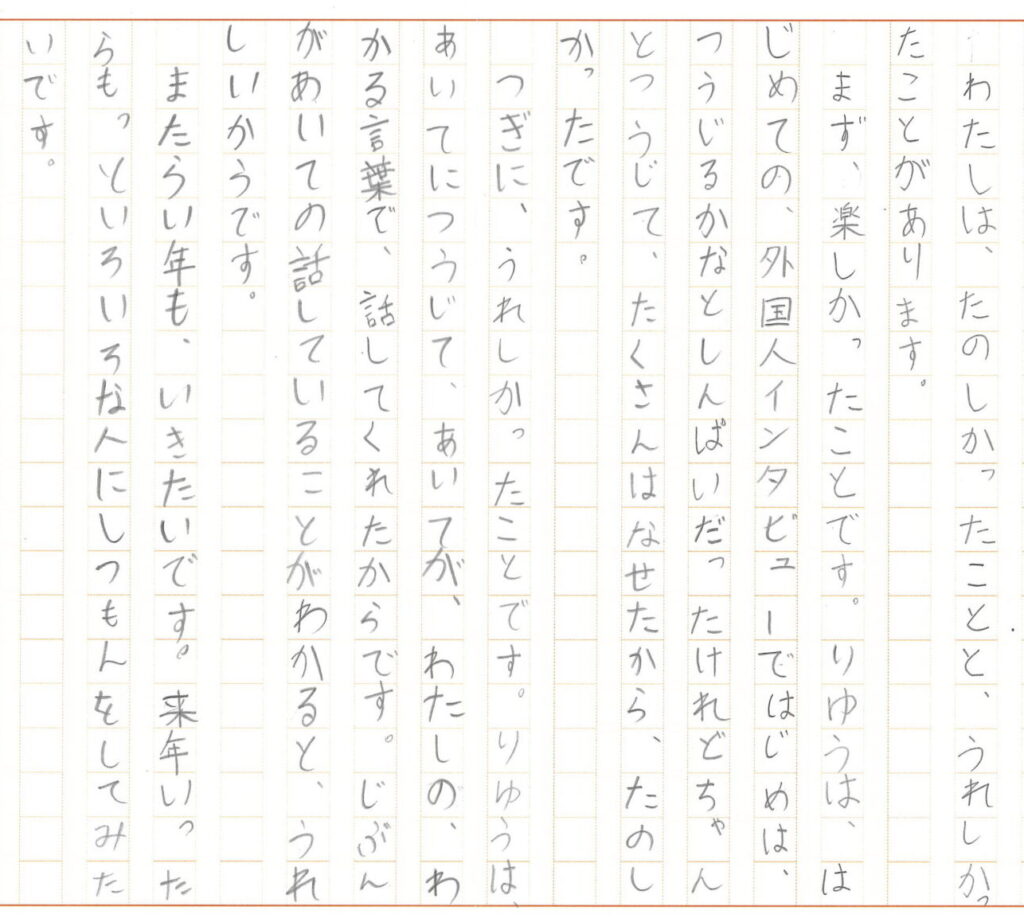 わたしは、たのしかったことと、うれしかっ
たことがあります。
まず、楽しかったことです。りゆうは、は
じめての、外国人インタビューではじめは、
つうじるかなとしんぱいだったけれどちゃん
とつうじて、たくさんはなせたから、たのし
かったです。
つぎに、うれしかったことです。りゆうは、
あいてにつうじて、あいてが、わたしの、わ
かる言葉で、話してくれたからです。じぶん
があいての話していることがわかると、うれ
しいかうです。
またらい年も、いきたいです。来年いった
らもっといろいろな人にしつもんをしてみた
いです。